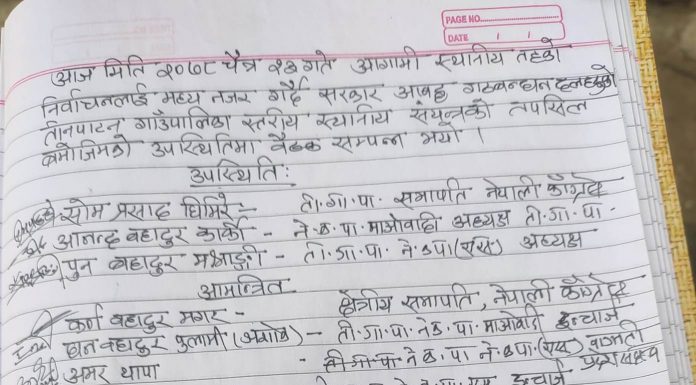 PAGE NO.
DATE
आज मिति २०७८ चैत्र २३ गते आगामी स्थानीय तहको
निर्वाचनलाई मध्य नजर गर्दै सरकार आवद्ध गठबन्धन दलहरुको
तीनपाटन गाउँपालिका स्तरीय स्थानीय संयन्त्रको तपसिल
बमोजिमको उपस्थितिमा बैठक सम्पन्न भयो ।
उपस्थिति:
सोम प्रसाद घिमिरे - ती.गा.पा. सभापति नेपाली काँग्रेस
आनन्द बहादुर कार्की - ने.क.पा. माओवादी अध्यक्ष ती.गा.पा.
पुन बहादुर - ती.गा.पा. ने.कपा (एस) अध्यक्ष
आमन्त्रित
कर्ण बहादुर मगर - क्षेत्रीय सभापति, नेपाली काँग्रेस
धन बहादुर (अशोक) - ती.गा.पा. ने.क.पा. माओवादी इन्चार्ज
अमर थापा - ने.कपा. (एस) वाग्मती
इन्चार्ज